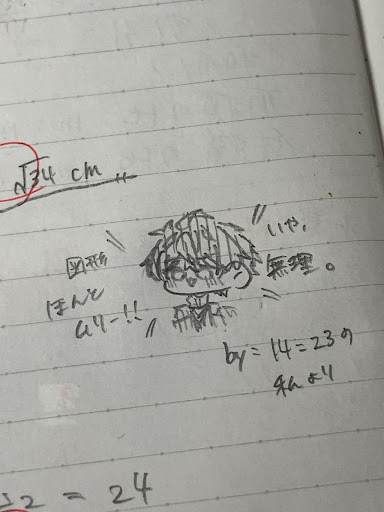 √34 cm
図形
ほんと
ムリー!!
いや、
無理。
by = 14=23の
私より
= 24